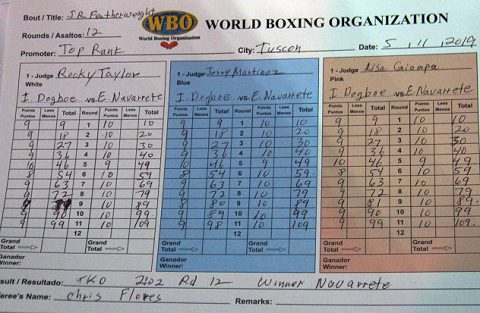 Bout / Title: JR Featherweight
Rounds / Asaltos: 12
Promoter: Top Rank
WBO
World Boxing Organization
WORLD BOXING ORGANIZATION
City: Tuscon
Date: 5 11 2019
1 - Judge Rocky Taylor
White
I. Dogboe vs E Navarrete
Points Puntos Less Menos Total Round Points Puntos Less Menos Total
9 9 1 10 10
9 18 2 10 20
9 27 3 10 30
9 36 4 10 40
10 46 5 9 49
8 54 6 10 59
9 63 7 10 69
9 72 8 10 79
9 9 10 89
9 90 10 10 99
9 99 11 10 109
12
Grand Total Grand Total
Ganador
Winner:
1 - Judge Jerry Martinez
Blue
I. Dogboe vs E. Navarrete
Points Puntos Less Menos Total Round Points Puntos Less Menos Total
9 9 1 10 10
9 18 2 10 20
9 27 3 10 30
9 36 4 10 40
10 46 5 9 49
8 54 6 10 59
9 63 7 10 69
9 72 8 10 79
8 80 9 10 89
9 89 10 10 99
9 98 11 10 109
12
Grand Total Grand Total
Ganador
Winner:
1 - Judge
Pink
I. Dogboe vs E. Navarrete
Points Puntos Less Menos Total Round Points Puntos Less Menos Total
9 9 1 10 10
9 18 2 10 20
9 27 3 10 30
9 36 4 10 40
10 46 5 9 49
8 54 6 10 59
9 63 7 10 69
9 72 8 10 79
9 81 9 10 89
9 90 10 10 99
9 99 11 10 109
12
Grand Total Grand Total
Ganador
Winner:
sult / Resultado: TKO 2:02 Rd 12 Winner Navarrete
feree's Name: Chris Flores Remarks: